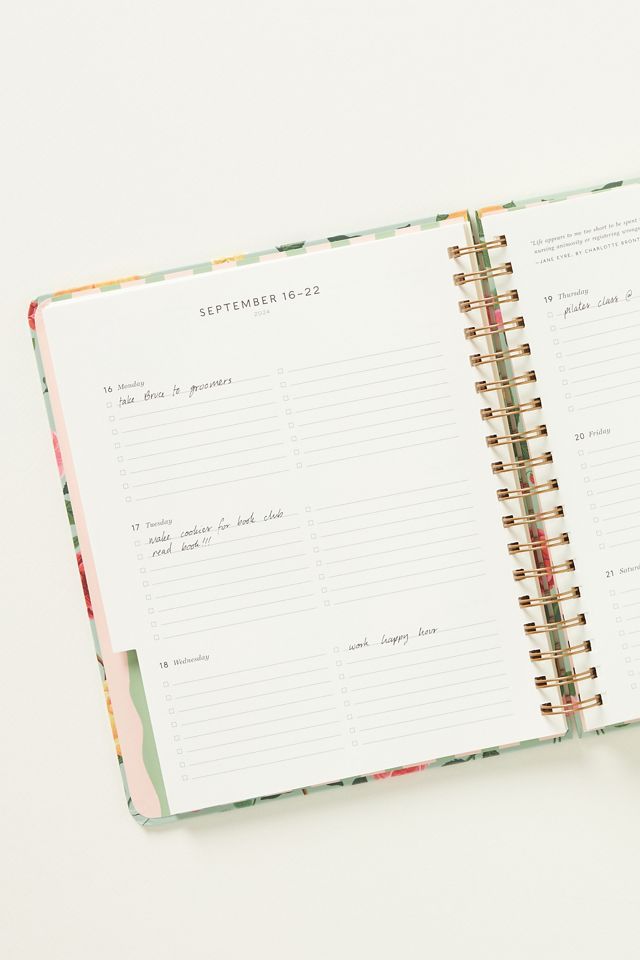 SEPTEMBER 16-22
2024
16 Monday
take Bruce to groomers
17 Tuesday
make cookies for book club
read book!!!
18 Wednesday
work happy hour
"Life appears to me too short to be spent
nursing animosity or registering wrongs
—JANE EYRE, BY CHARLOTTE BRON
19 Thursday
pilates class @
20 Friday
21 Saturd